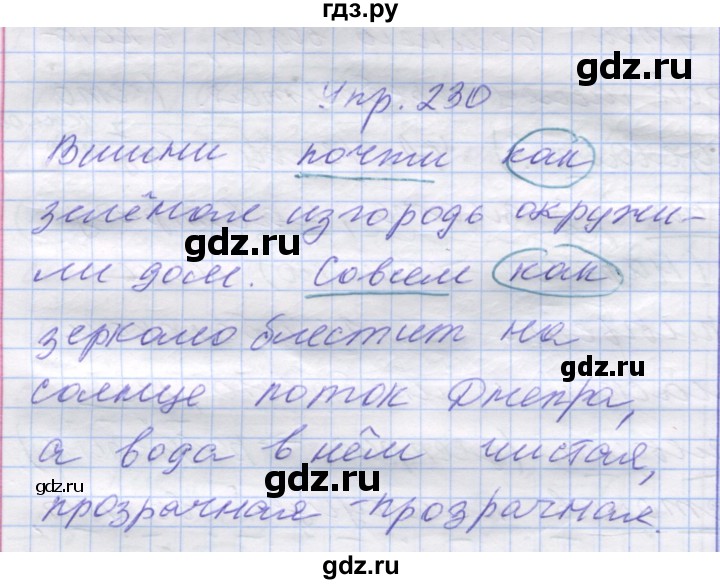 гдз.ру
Упр. 230
Вишни почти как
зелёная изгородь окружи-
ли дом. Совсем как
зеркало блестит на
солнце поток Днепра,
а вода в нём чистая,
прозрачная-прозрачная.
gdz.ru
gdz.ru
gdz.ru
gdz.ru
gdz.ru
gdz.ru
gdz.ru
gdz.ru